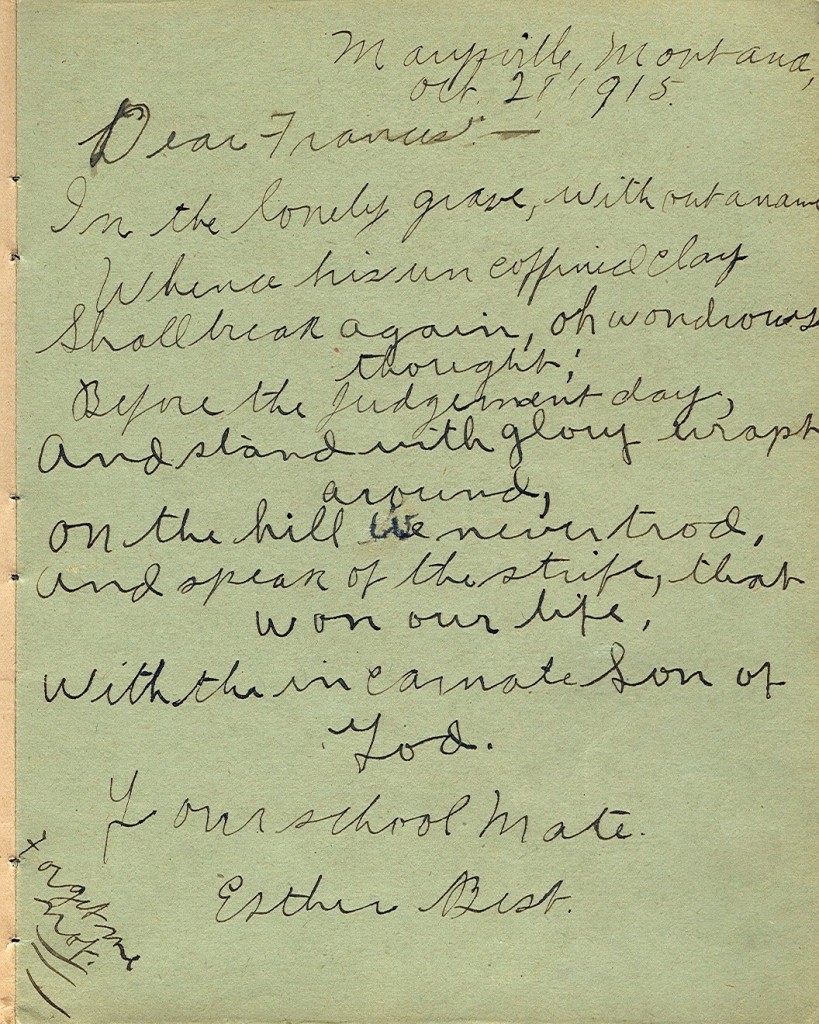 Marysville, Montana,
Oct. 21, 1915.
Dear Frances:—
In the lonely grave, with out a name
Whence his un coffined clay
Shall break again, oh wondrous
thought;
Before the judgement day,
And stand with glory wrapt
around,
On the hill we never trod,
And speak of the strife, that
won our life,
With the in carnate Son of
God.
Your school Mate.
Esther Best.
Forget me
not.